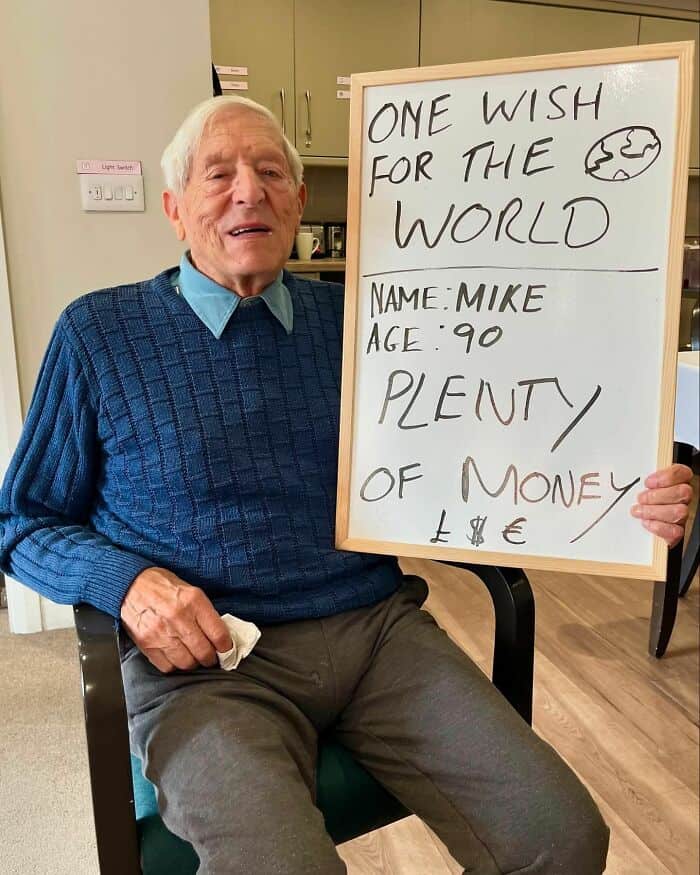 Light Switch
ONE WISH
FOR THE
WORLD
NAME: MIKE
AGE: 90
PLENTY
OF MONEY
£ $ €